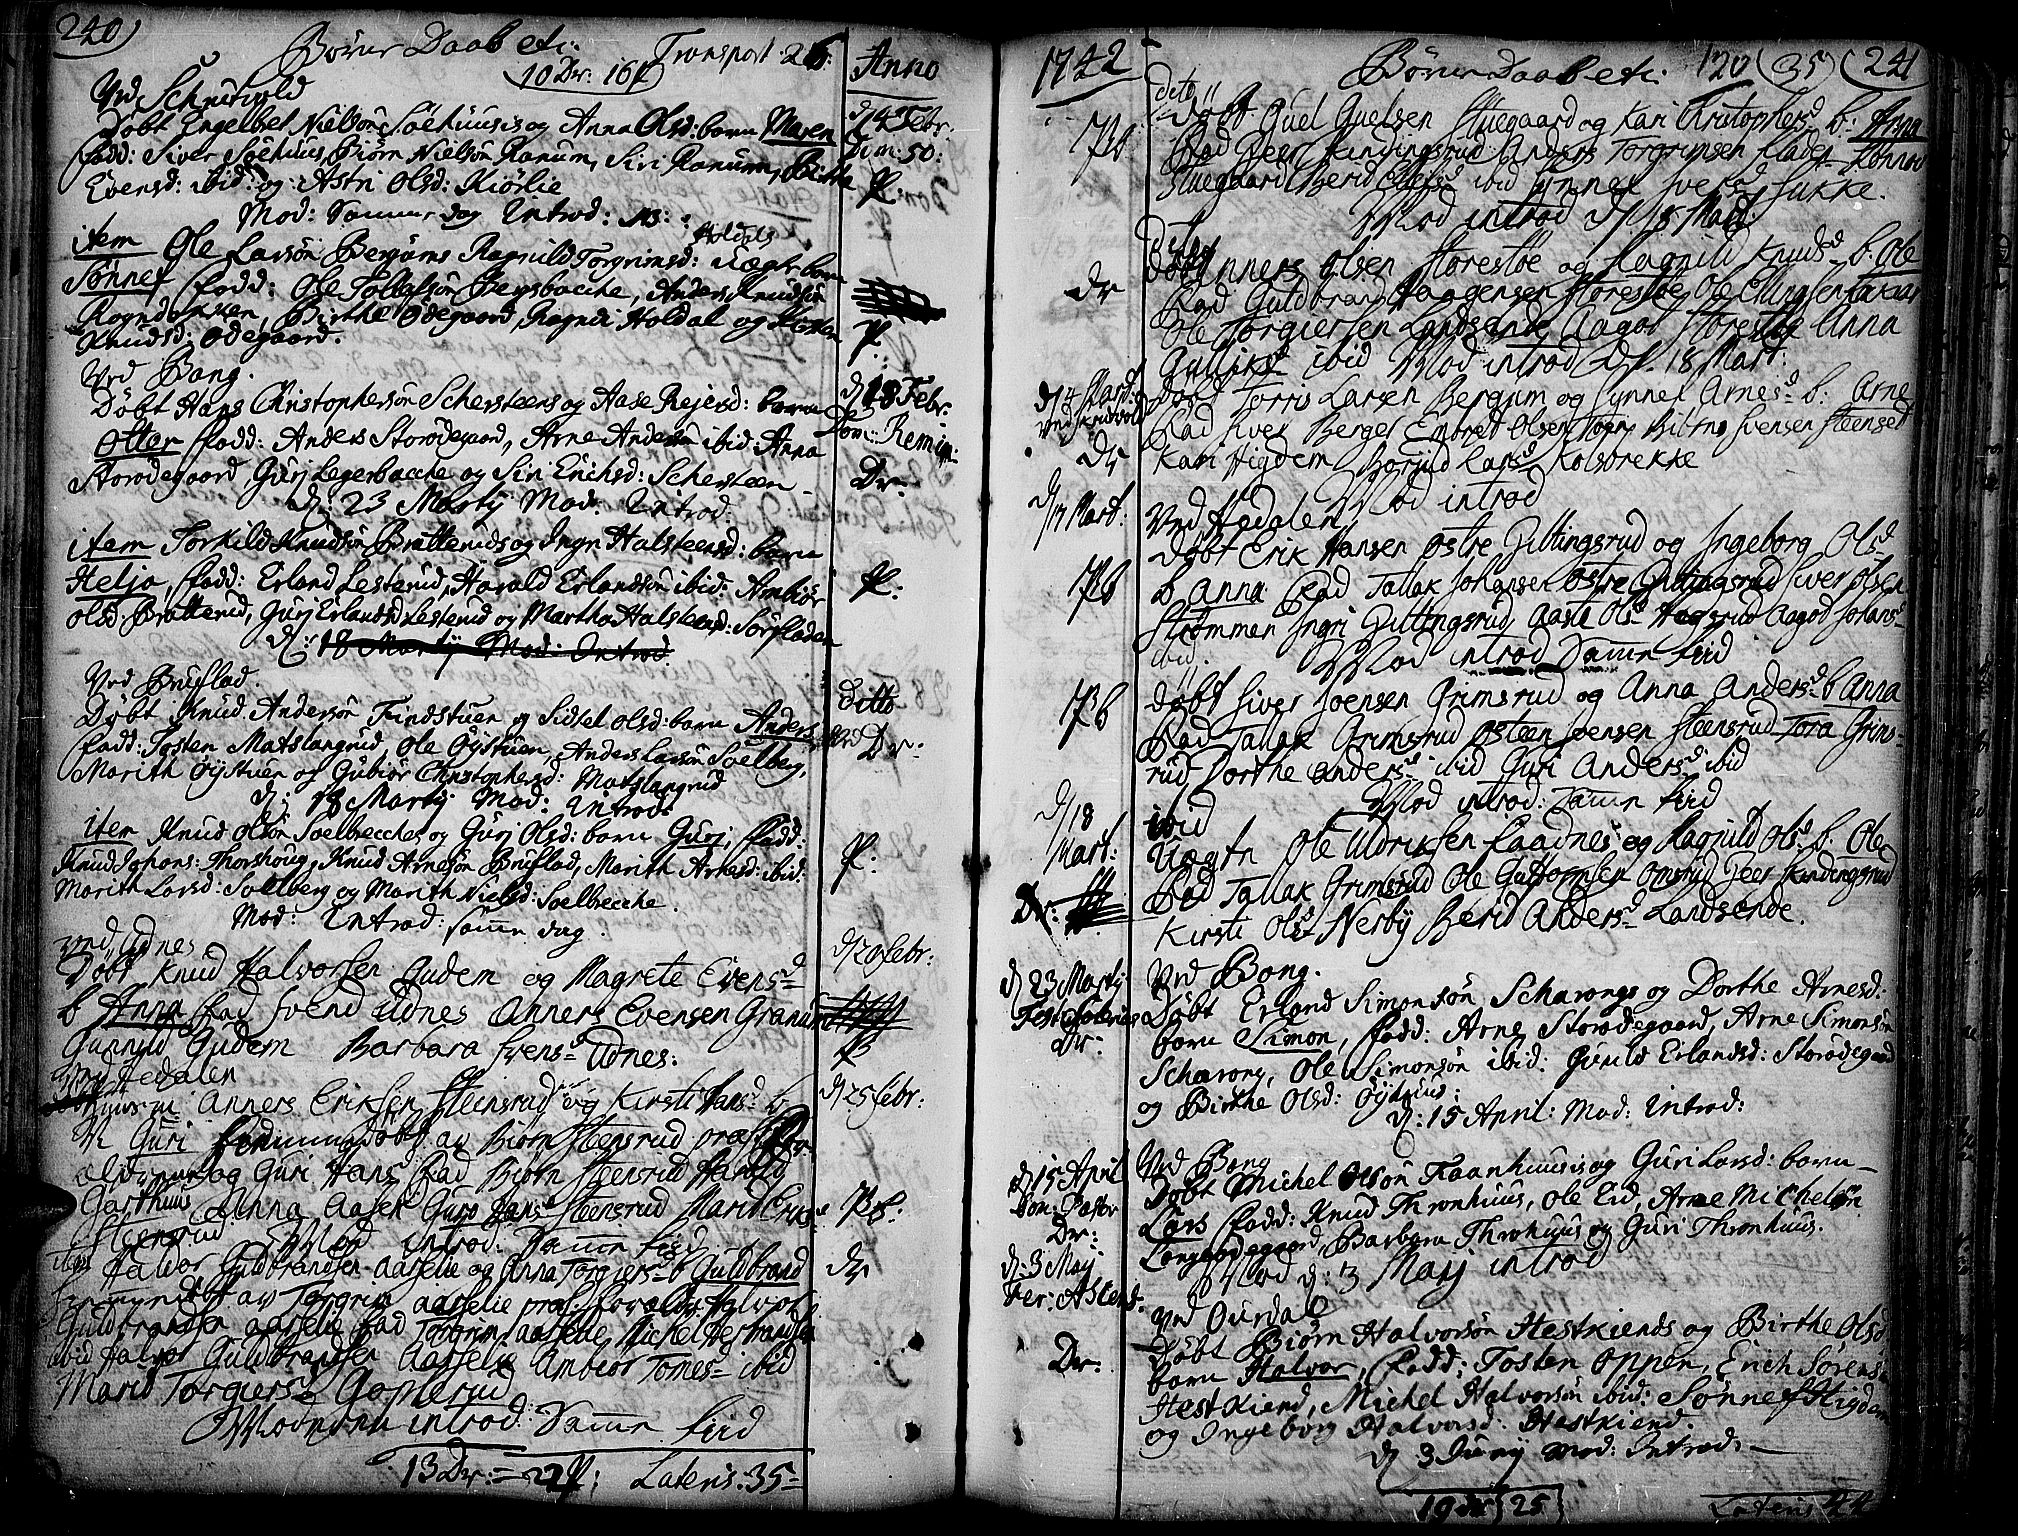 240)
Børn Daabet: Transport. 26.
10 Dr: 16 P
Anno
Ved Schrutvold
Døbt Engelbret Nielsøn Søehuus og Anna Olsd: barn Maren
d: 4 Febr.
fadd: Siver Søehuus, Biørn Nielsøn Ranum, Siri Ranum, Birthe
Dom: 50:
Evensd: ibid: og Astri Olsd: Kiørlie
P.
Mod: Samme dag Introd:
item Ole Larsøn Bergums Ragnild Torgrimsd: Holdals uægte barn
Sønnef fadd: Ole Tollefsøn Bergsbacche, Anders Knudsøn
Rogndokken, Birthe Ødegaard, Ragndi Holdal og Kirsten
Knudsd: Ødegaard.
P
Ved Bang.
d: 18 Febr.
Døbt Hans Christophersøn Schersteens og Aase Reiersd: barn
Dom: Remin:
Otter fadd: Anders Storødegaard, Arne Andersøn ibid: Anna
Storødegaard, Guri Legerbacche og Siri Erichsd: Schersteen
Dr:
d: 23 Martij Mod: Introd:
item Torkild Knudsøn Bratteruds og Ingri Halsteensd: barn
Helje, fadd: Erland Lesterud, Harald Erlandsøn ibid: Ambiør
P:
Olsd: Bratterud, Gurj Erlandsd Lesterud og Martha Halsteensd: Sørfladen
d: 18 Martij Mod: Introd:
Ved Bruflad
Ditto
Døbt Knud Andersøn Findstuen og Sidsel Olsd: barn Anders
fadd: Tosten Matslangrud, Ole Øystuen, Anders Larsøn Soelberg,
Dr:
Marith Øystuen og Gubiør Christophersd: Matslangrud
d: 18 Martij Mod: Introd:
item Knud Olsøn Soelbecches og Gurj Olsd: barn Gurj, fadd:
Knud Johans: Thorshoug, Knud Arnesøn Bruflad, Marith Arnesd: ibid:
P:
Marith Larsd: Soelberg og Marith Nielsd: Soelbecche.
Mod: Introd: samme dag.
Ved Udnes
d: 20 febr:
Døbt Knud Halvorsen Gudem og Magrete Evensd
b Anna fad Svend Udnes Anners Evensen Granum
Gunnild Gudem Barbara Svensd Udnes:
P
Ved Hedalen
d: 25 febr:
Anners Eriksen Steensrud og Kirsti Hansd b
Guri hjemmedøbt av Biørn Steensrud præs:
og Guri Hansd fad Biørn Steensrud Harald
Garthuus Anna Aasen Guro Hansd Steensrud Marit Eriks
P b:
Steensrud Mod introd: Samme tid
ibid Halvor Guldbrandsen Aasselie og Anna Torgiersd b Guldbrand
dr
hjemmedøbt av Torgrim Aasselie præs: forældre Halvor
Guldbrandsen Aasselie fad Torgrim Aasselie, Mickel
ibid Halvor Guldbrandsen Aasselie Ambiør Tomesd ibid
Marit Torgiersd Goplerud
Modrene introd: Samme tid
13 Dr: 22 P: Lateris: 35
1742
Børn Daabet: 120 (35) (241
dito
Døbt Guel Guelsen Stuegaard og Kari Christophersd b: Anna
P b
fad Peer Kindingsrud Anders Torgrimsen Rønnoug
Stuegaard Berit ibid Synnef Svensd Sukke.
Mod introd d 18 Mart:
dito
Døbt Anners Olsen Storestøe og Ragnild Knudsd b. Ole
Dr
fad Guldbrand Haagensen Storestøe Ole Ellingsen
Ole Torgiersen Landsende Aagot Storestøe Anna
Gulliksd ibid Mod introd d. 18 Mart:
d: 4 Mart:
Døbt Torris Larsen Bergum og Synnef Arnesd b: Arne
Ved Skrutvold
fad Siver Berger Embret Olsen Biørn Svensen Steensæt
Dr
Kari Higdem Borgild Larsd Kolsbrekke
Mod introd
d 17 Mart:
Ved Hedalen
Døbt Erik Hansen Østre Gittingsrud og Ingeborg Olsd
P b
b Anna fad Tallak Johansen Østre Gittingsrud Siver Olsen
Strømmen Ingri Gittingsrud, Aase Olsd Hagsrud Aagod Johansd
ibid. Mod introd Samme tid
P b
Døbt Siver Joensen Grimsrud og Anna Andersd b Anna
fad Tallak Grimsrud Østen Joensen Steensrud Tora Grims-
rud Dorthe Andersd ibid Guri Andersd ibid
Mod introd: Samme tid
d: 18 Mart:
ibid
Uægte Ole Uldriksen Faadnes og Ragnild Olsd b. Ole
fad Tallak Grimsrud Ole Guttormsen Omsrud Peer Kindingsrud
Dr:
Kirsti Olsd Nerby Berit Andersd Landsende.
d: 23 Martij
Ved Bang.
Døbt Erland Simonsøn Scharongs og Dorthe Arnesd:
Dr:
barn Simon, fadd: Arne Storødegaard, Arne Simonsøn
Scharong, Ole Simonsøn ibid: Gunild Erlandsd: Storødegaard
og Birthe Olsd: Øyhuus:
d: 15 April: Mod: Introd:
Ved Bang
d: 15 April
Døbt Michel Olsøn Faanhuus og Guri Larsd: barn
Dom: Pastor
Lars fadd: Knud Thronhuus, Ole Eid, Arne Michelsøn
Dr:
Langødegaard, Barbara Thronhuus og Guri Thronhuus.
Mod d: 3 Maij introd
d: 3 Maij
Fer: Ascens:
Ved Ourdal
Døbt Biørn Halvorsøn Hestkiends og Birthe Olsd
Dr:
barn Halvor, fadd: Tosten Oppen, Erich Sørens
Hestkiend, Michel Halvorsøn ibid: Sønnef Higdem
og Ingeborg Halvorsd: Hestkiend
d 3 Junij Mod: Introd:
19 dr 25
Lateris 44